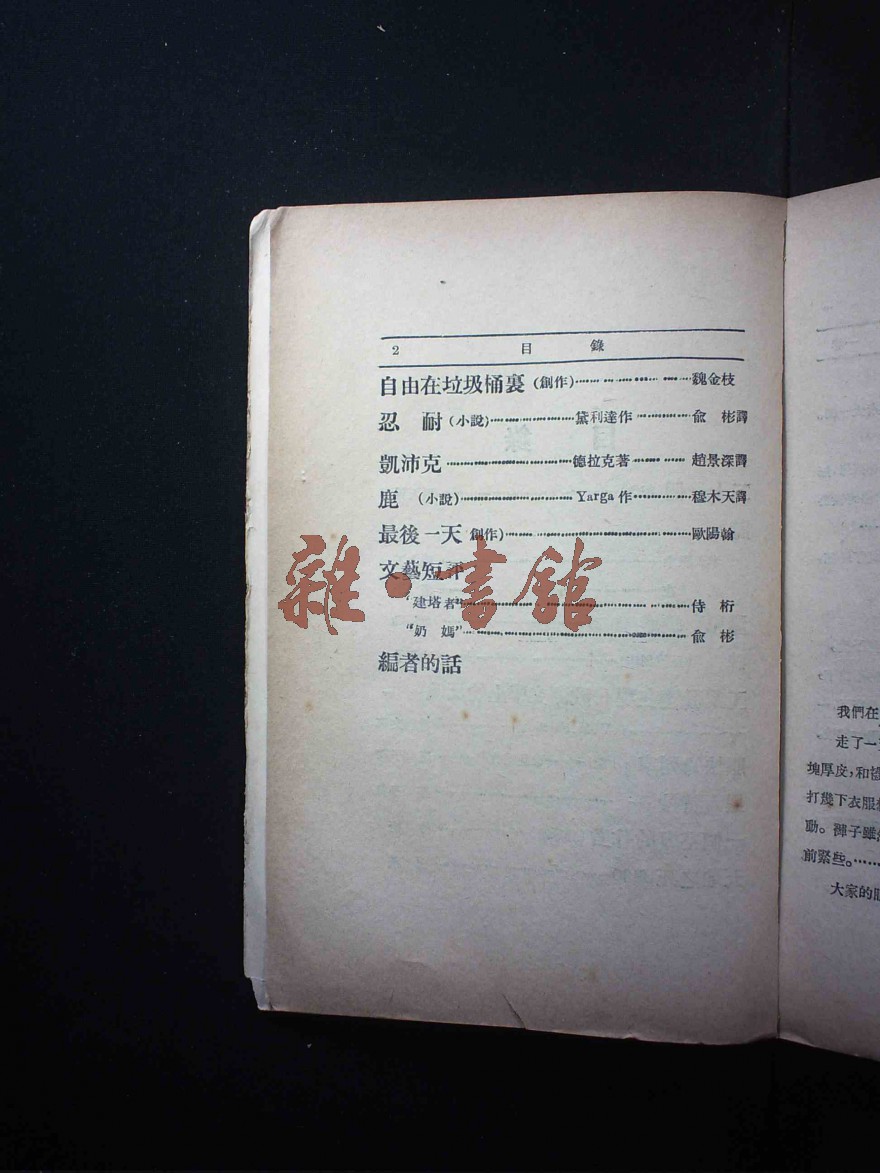 2 目 錄
自由在垃圾桶裏 (創作)……魏金枝
忍 耐 (小說)……黛利達作……俞 彬譯
凱沛克……德拉克著……趙景深譯
鹿 (小說)……Yarga 作……穆木天譯
最後一天 創作)……歐陽翰
文藝短評
“建塔者”……侍 桁
“奶 媽”……俞 彬
編者的話
雜·書館
我們在
走了一
塊厚皮，和
打幾下衣服
動。褲子雖
前緊些。……
大家的